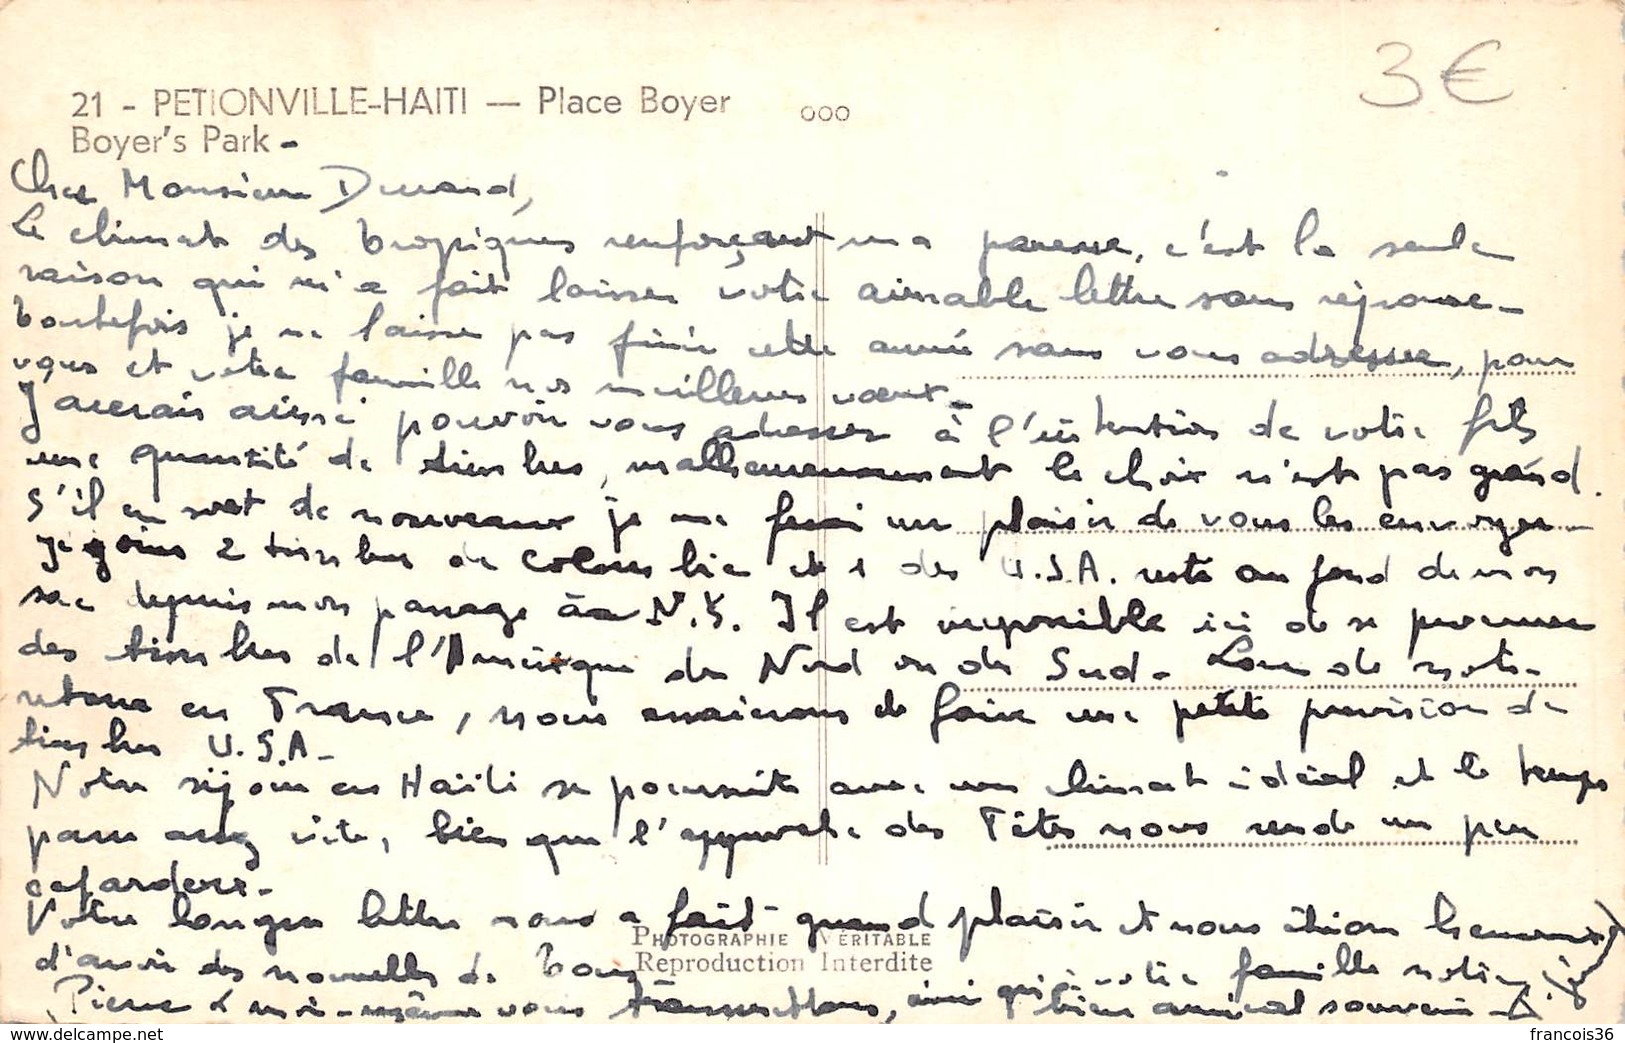 3€
21 - PETIONVILLE-HAITI — Place Boyer ooo
Boyer's Park -
Cher Monsieur Durand,
Le climat des tropiques renforçant ma paresse, c'est la seule
raison qui m'a fait laisser votre aimable lettre sans réponse -
toutefois je ne laisse pas finir cette année sans vous adresser, pour
vous et votre famille nos meilleurs vœux -
J'aurais aussi pouvoir vous adresser à l'intention de votre fils
une quantité de timbres, malheureusement le choix n'est pas grand.
S'il en sort de nouveaux je me ferai un plaisir de vous les envoyer -
Je joins 2 timbres de Colombie et 1 des U.S.A. resté au fond de mon
sac depuis mon passage à N.Y. Il est impossible ici de se procurer
des timbres de l'Amérique du Nord ou du Sud - Lors de notre
retour en France, nous essaierons de faire une petite provision de
timbres U.S.A. -
Notre séjour en Haïti se poursuit avec un climat idéal et le temps
passe assez vite, bien que l'approche des Fêtes nous rende un peu
cafardeux -
Votre longue lettre nous a fait grand plaisir et nous étions heureux
d'avoir des nouvelles de tous
Pierre & moi-même vous transmettons, ainsi qu'à votre famille notre
bien amical souvenir -
PHOTOGRAPHIE VÉRITABLE
Reproduction Interdite
www.delcampe.net
francois36